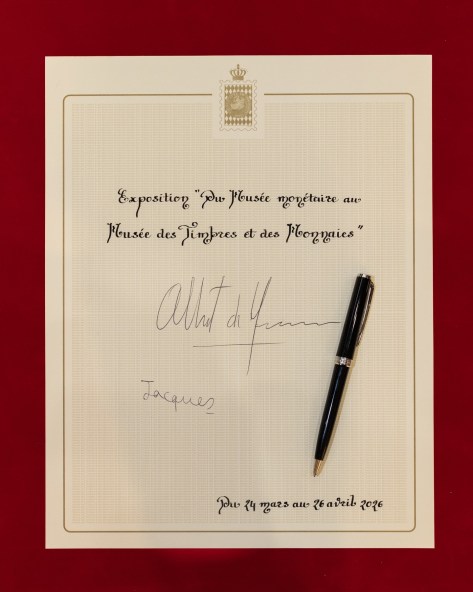 Exposition "Du Musée monétaire au
Musée des Timbres et des Monnaies"
Albert de
Jacques
Du 24 mars au 26 avril 2026